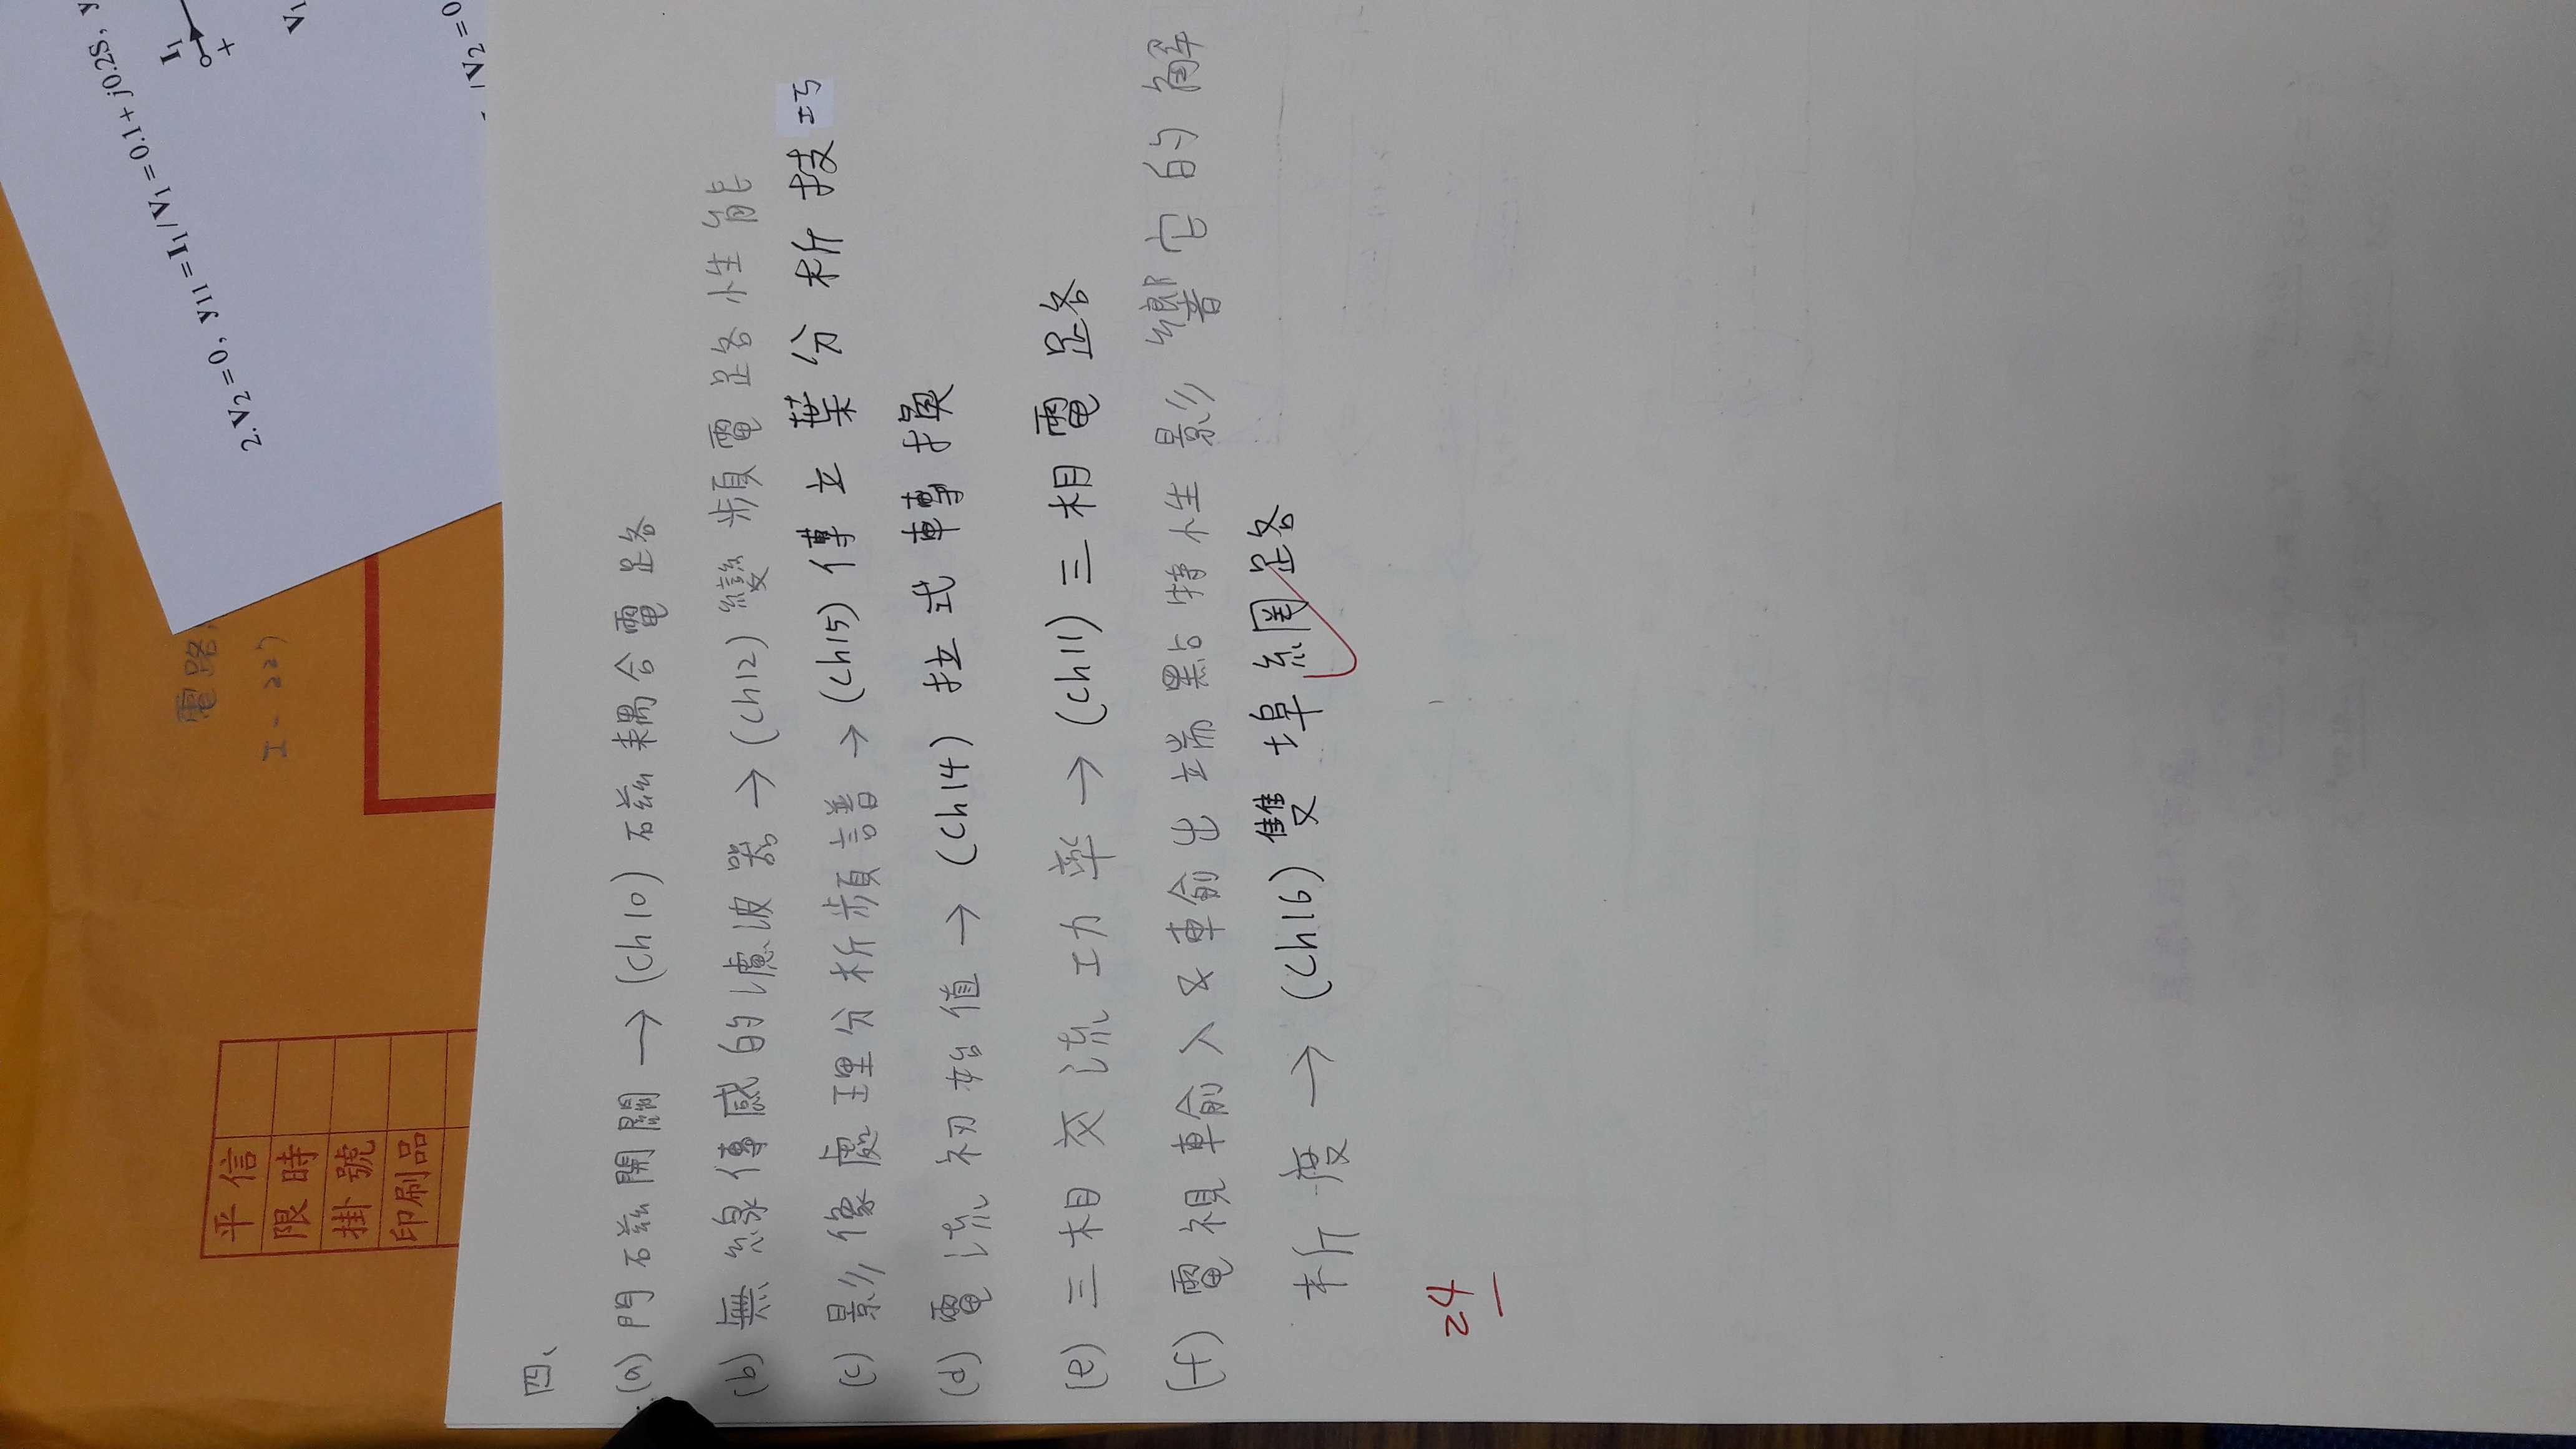 平信
限時
掛號
印刷品
電路
I-227
2. V₂ = 0, y₁₁ = I₁ / V₁ = 0.1 + j0.2S, y
I₁
+
V₁
/ V₂ = 0
四、
(a) 門磁開關 → (ch10) 磁耦合電路
(b) 無線傳感的濾波器 → (ch12) 變頻電路性能
(c) 影像處理分析頻譜 → (ch15) 傅立葉分析技巧
(d) 電流初始值 → (ch14) 拉式轉換
(e) 三相交流功率 → (ch11) 三相電路
(f) 電視輸入&輸出端點特性影響它的解
析度 → (ch16) 雙埠網路
24